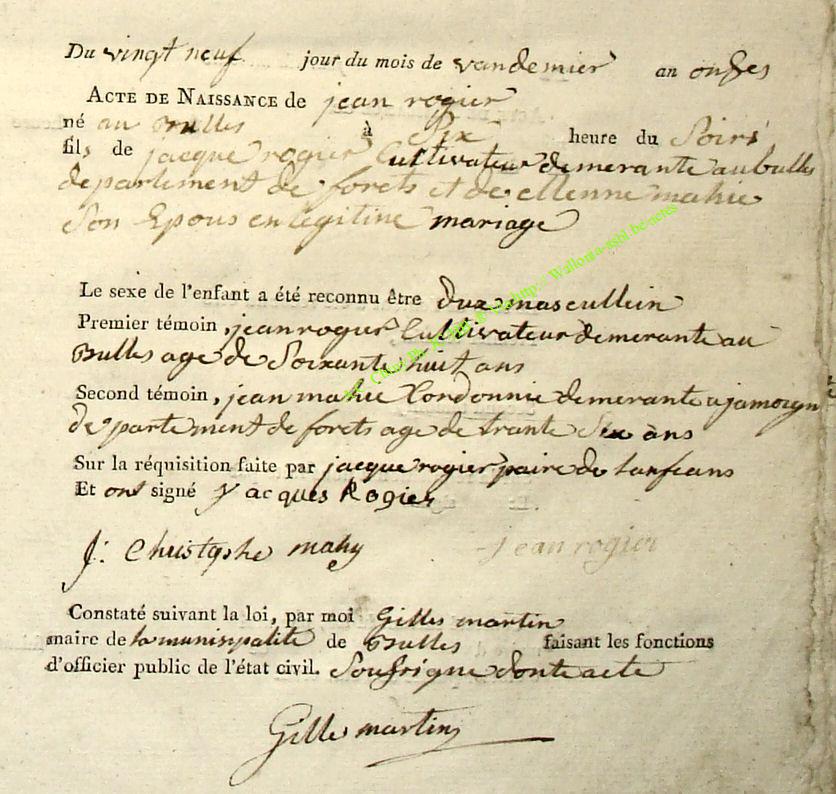 Du vingt neuf jour du mois de vandemier an onzes
ACTE DE NAISSANCE de jean rogier
né au Bulles à Six heure du Soirs
fils de jacque rogier Cultivateur demerante au bulles
departement de forets et de ellenne mahie
Son Epous en legitine mariage
Le sexe de l'enfant a été reconnu être dux mascullein
Premier témoin, jean rogier Cultivateur demerante au
Bulles age de Soixante huit ans
Second témoin, jean mahie Cordonnie demerante a jamoign
departement de forets age de trante Six ans
Sur la réquisition faite par jacque rogier paire de lanfeans
Et ont signé Jacques Rogier
J: Christophe mahy jean rogier
Constaté suivant la loi, par moi Gilles martin
maire de la munispalite de Bulles faisant les fonctions
d'officier public de l'état civil. Sousigne donte acte
Gille martin